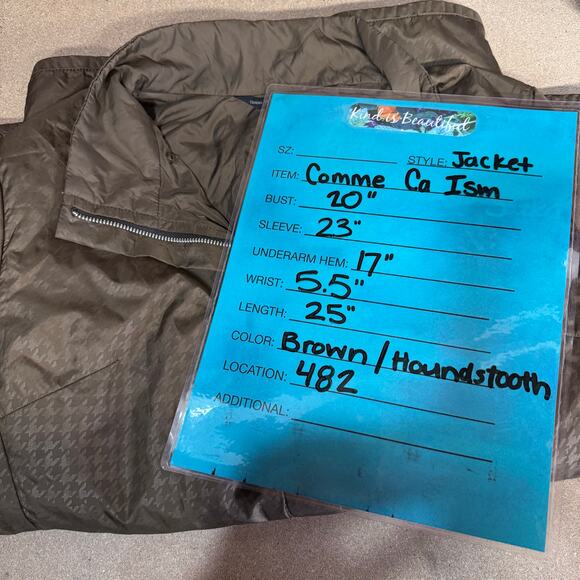 Kind is Beautiful
SZ: STYLE: Jacket
ITEM: Comme Ca Ism
BUST: 20"
SLEEVE: 23"
UNDERARM HEM: 17"
WRIST: 5.5"
LENGTH: 25"
COLOR: Brown / Houndstooth
LOCATION: 482
ADDITIONAL: